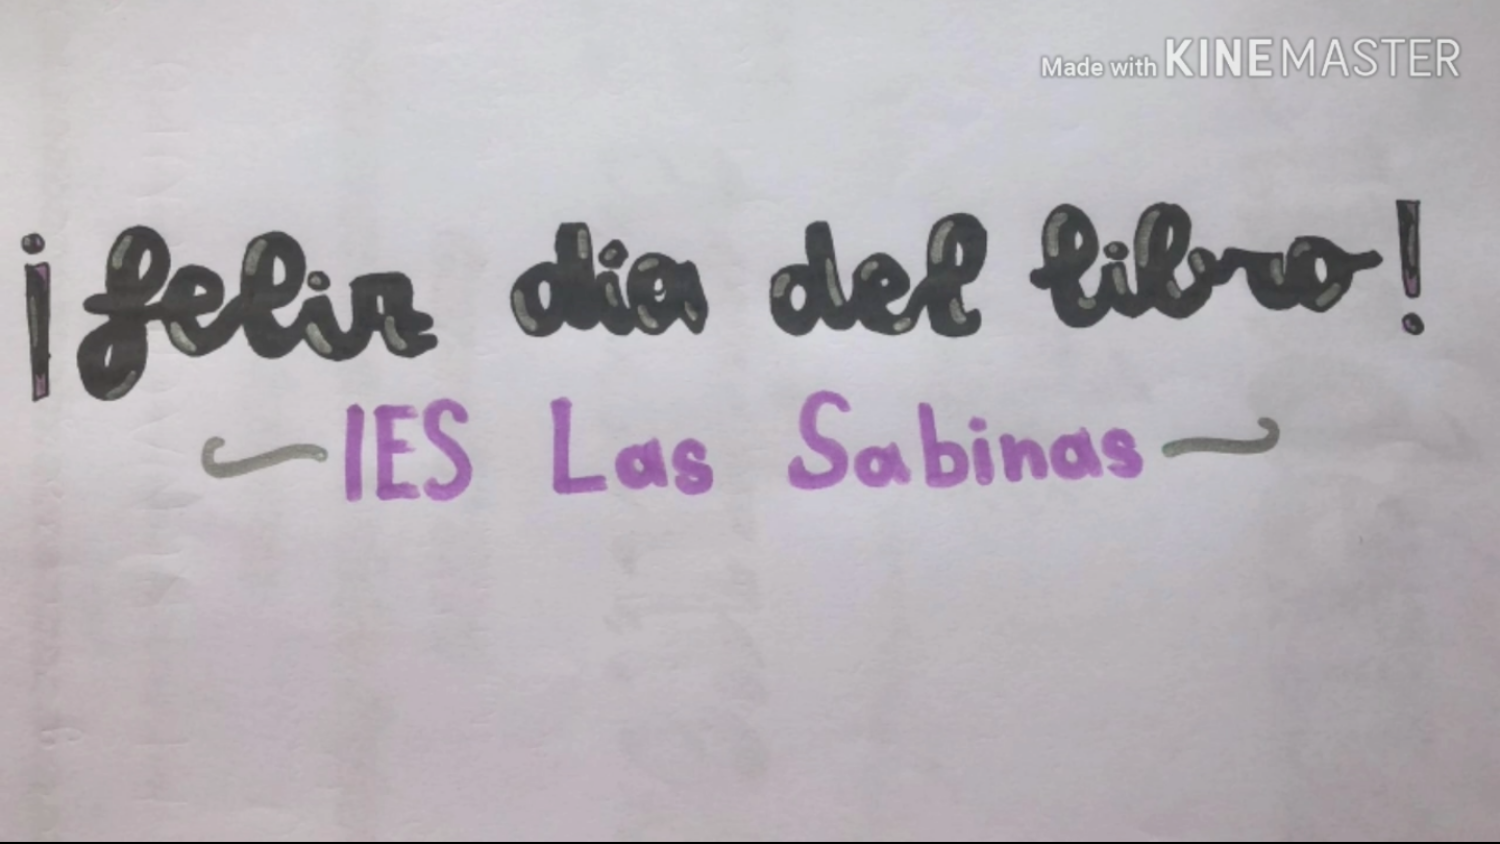 Made with KINEMASTER
¡feliz dia del libro!
IES Las Sabinas